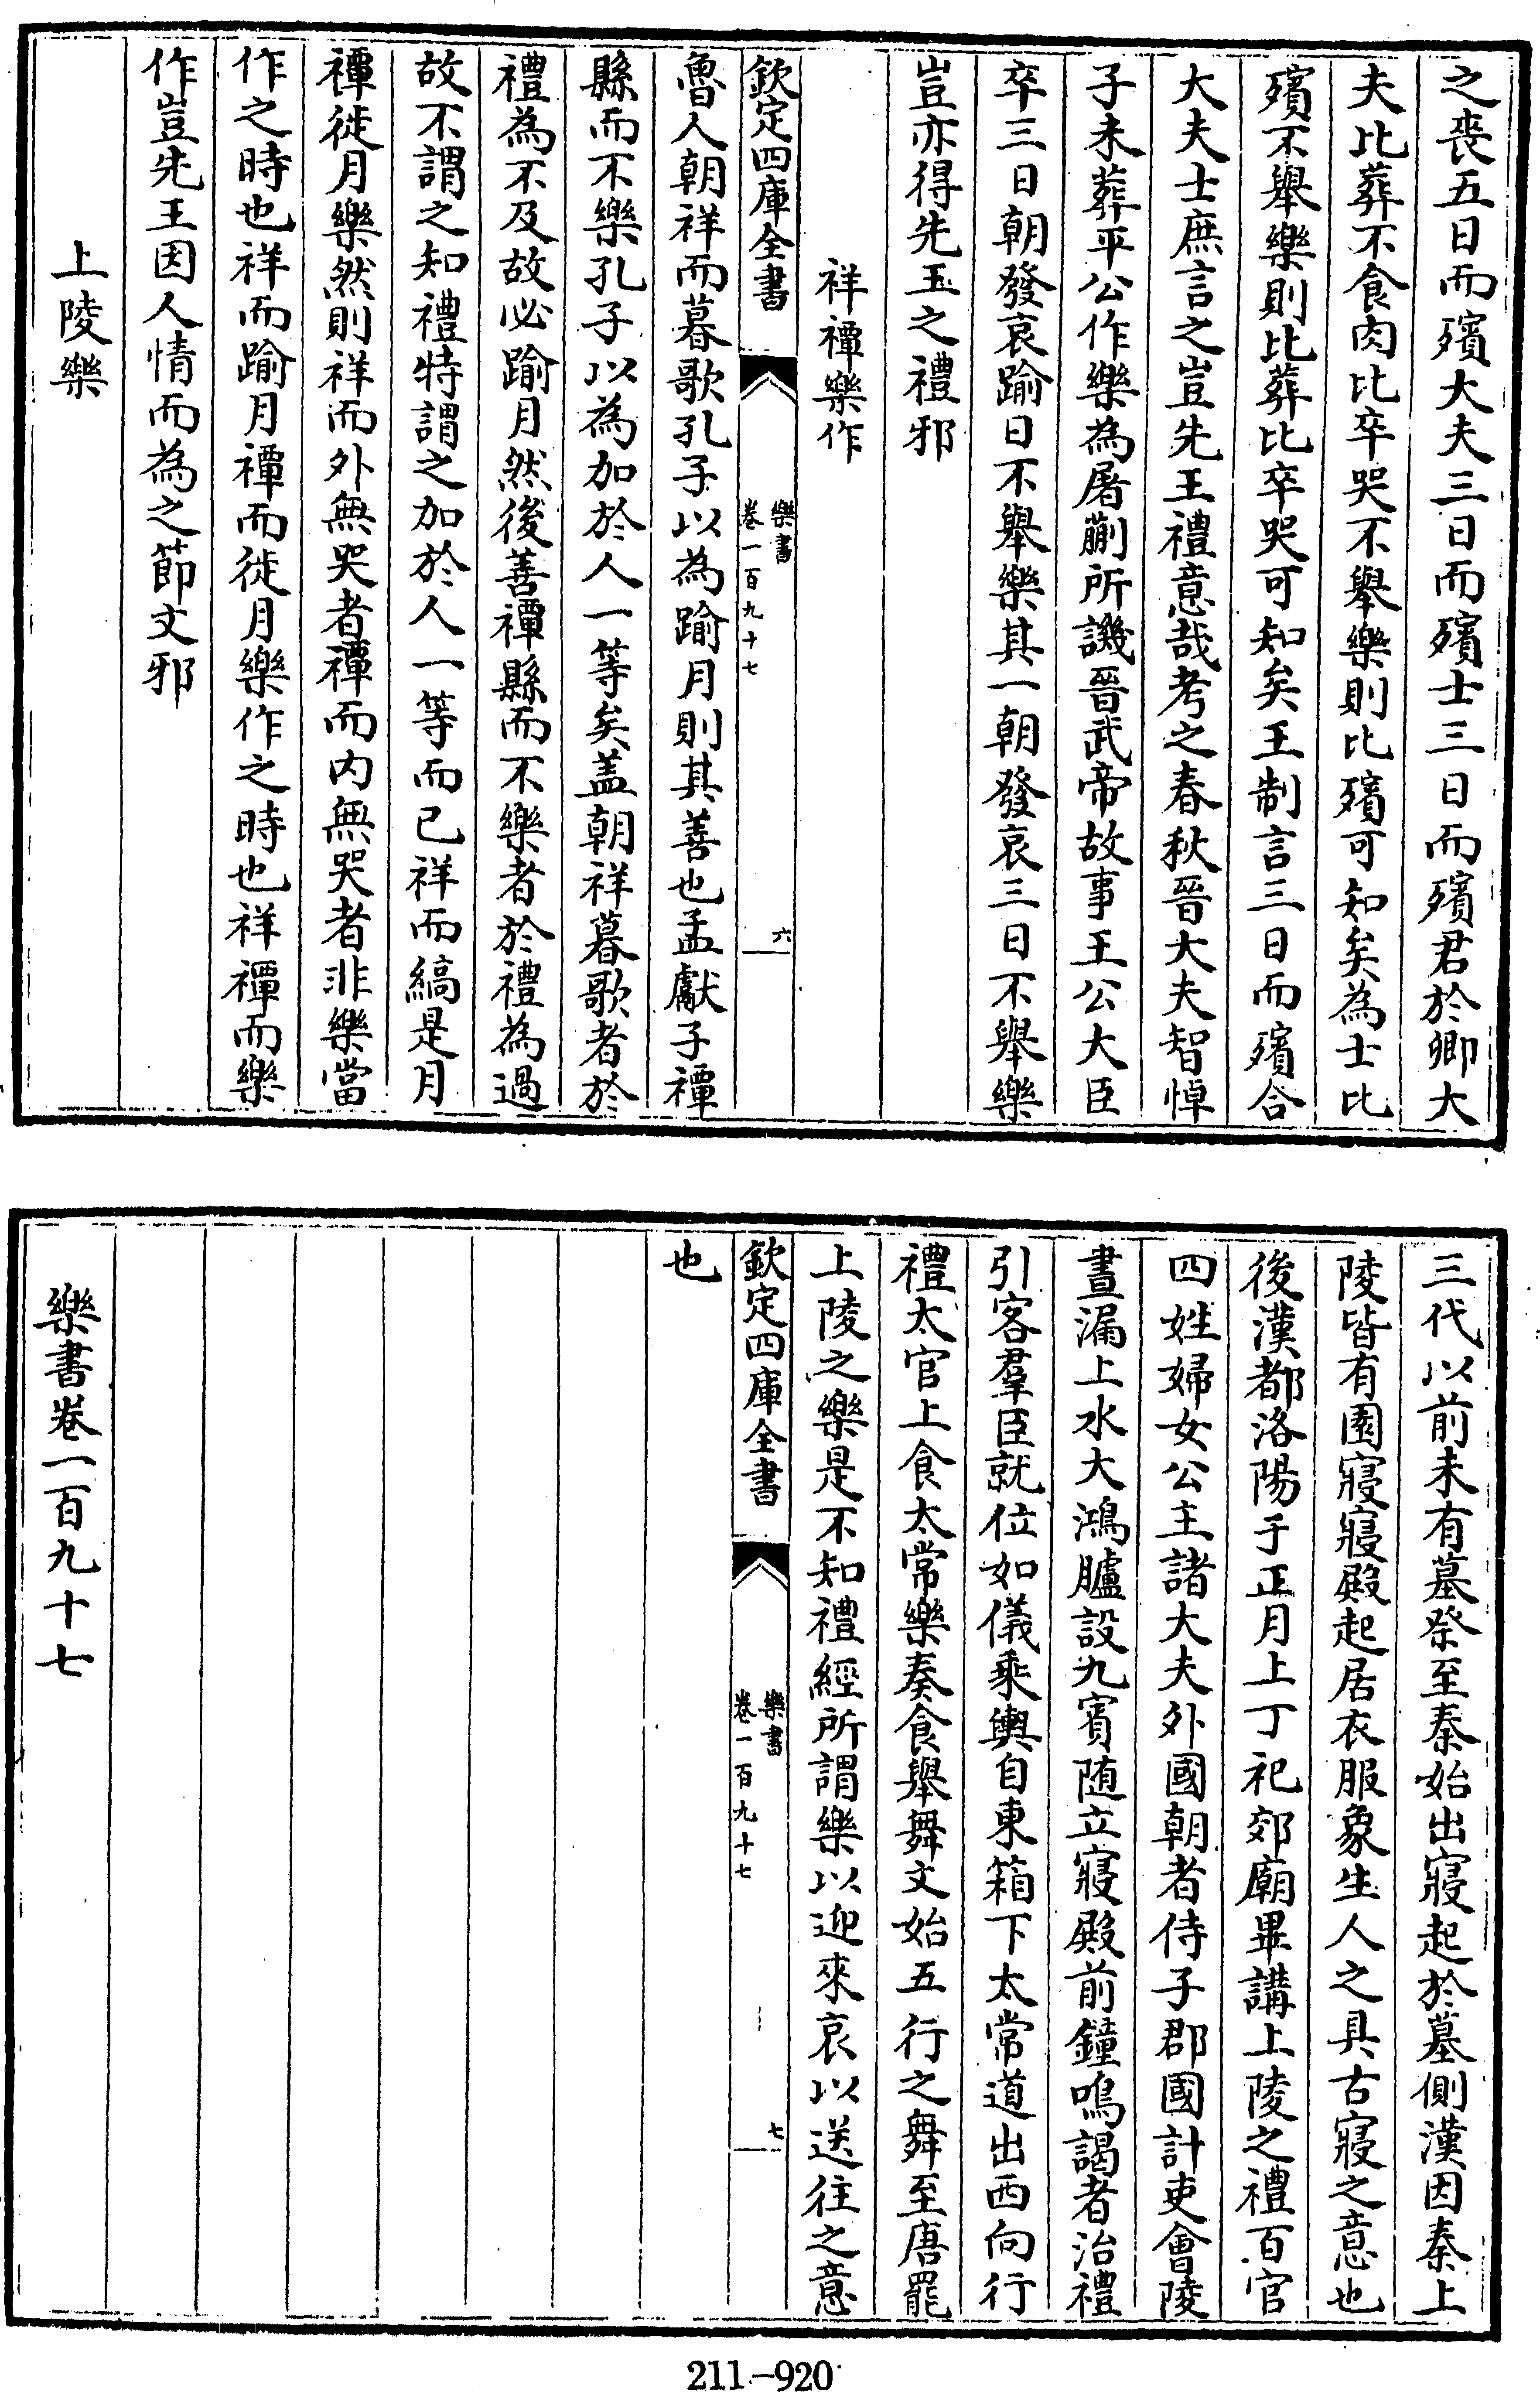 之喪五日而殯大夫三日而殯士三日而殯君於卿大
夫比葬不食肉比卒哭不舉樂則比殯可知矣為士比
殯不舉樂則比葬比卒哭可知矣王制言三日而殯合
大夫士庶言之豈先王禮意哉考之春秋晉大夫智悼
子未葬平公作樂為屠蒯所譏晉武帝故事王公大臣
卒三日朝發哀踰日不舉樂其一朝發哀三日不舉樂
豈亦得先王之禮邪
祥禫樂作
欽定四庫全書
樂書
卷一百九十七
六
魯人朝祥而暮歌孔子以為踰月則其善也孟獻子禫
縣而不樂孔子以為加於人一等矣盖朝祥暮歌者於
禮為不及故必踰月然後善禫縣而不樂者於禮為過
故不謂之知禮特謂之加於人一等而已祥而縞是月
禫徙月樂然則祥而外無哭者禫而内無哭者非樂當
作之時也祥而踰月禫而徙月樂作之時也祥禫而樂
作豈先王因人情而為之節文邪
上陵樂
三代以前未有墓祭至秦始出寢起於墓側漢因秦上
陵皆有園寢寢殿起居衣服象生人之具古寢之意也
後漢都洛陽于正月上丁祀郊廟畢講上陵之禮百官
四姓婦女公主諸大夫外國朝者侍子郡國計吏會陵
晝漏上水大鴻臚設九賓随立寢殿前鐘鳴謁者治禮
引客羣臣就位如儀乘輿自東箱下太常道出西向行
禮太官上食太常樂奏食舉舞文始五行之舞至唐罷
上陵之樂是不知禮經所謂樂以迎來哀以送往之意
欽定四庫全書
樂書
卷一百九十七
七
也
樂書卷一百九十七
211-920